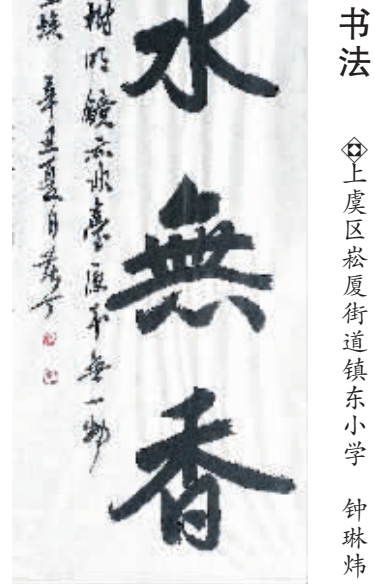 书法
上虞区崧厦街道镇东小学 钟琳炜
水無香
樹明鏡亦非臺原本無一物
埃 辛丑夏月